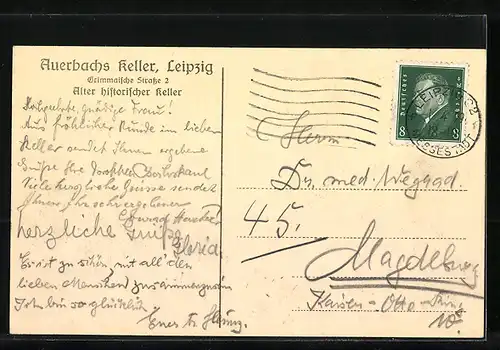 Auerbachs Keller, Leipzig
Grimmaische Straße 2
Alter historischer Keller
gnädige Frau!
Aus fröhlicher Runde im lieben
Keller sendet Ihnen ergebene
Grüße Ihr
Viele herzliche Grüsse sendet
Ihnen Ihr sehr ergebener
herzliche Grüße
Gloria
Es ist zu schön, mit all' den
lieben Menschen zusammenzusein
Ich bin so glücklich!
Deutsches Reich
8 8
LEIPZIG C2
Herrn
Dr. med. Weygad
45.
Magdeburg
Kaiser-Otto-Ring
10